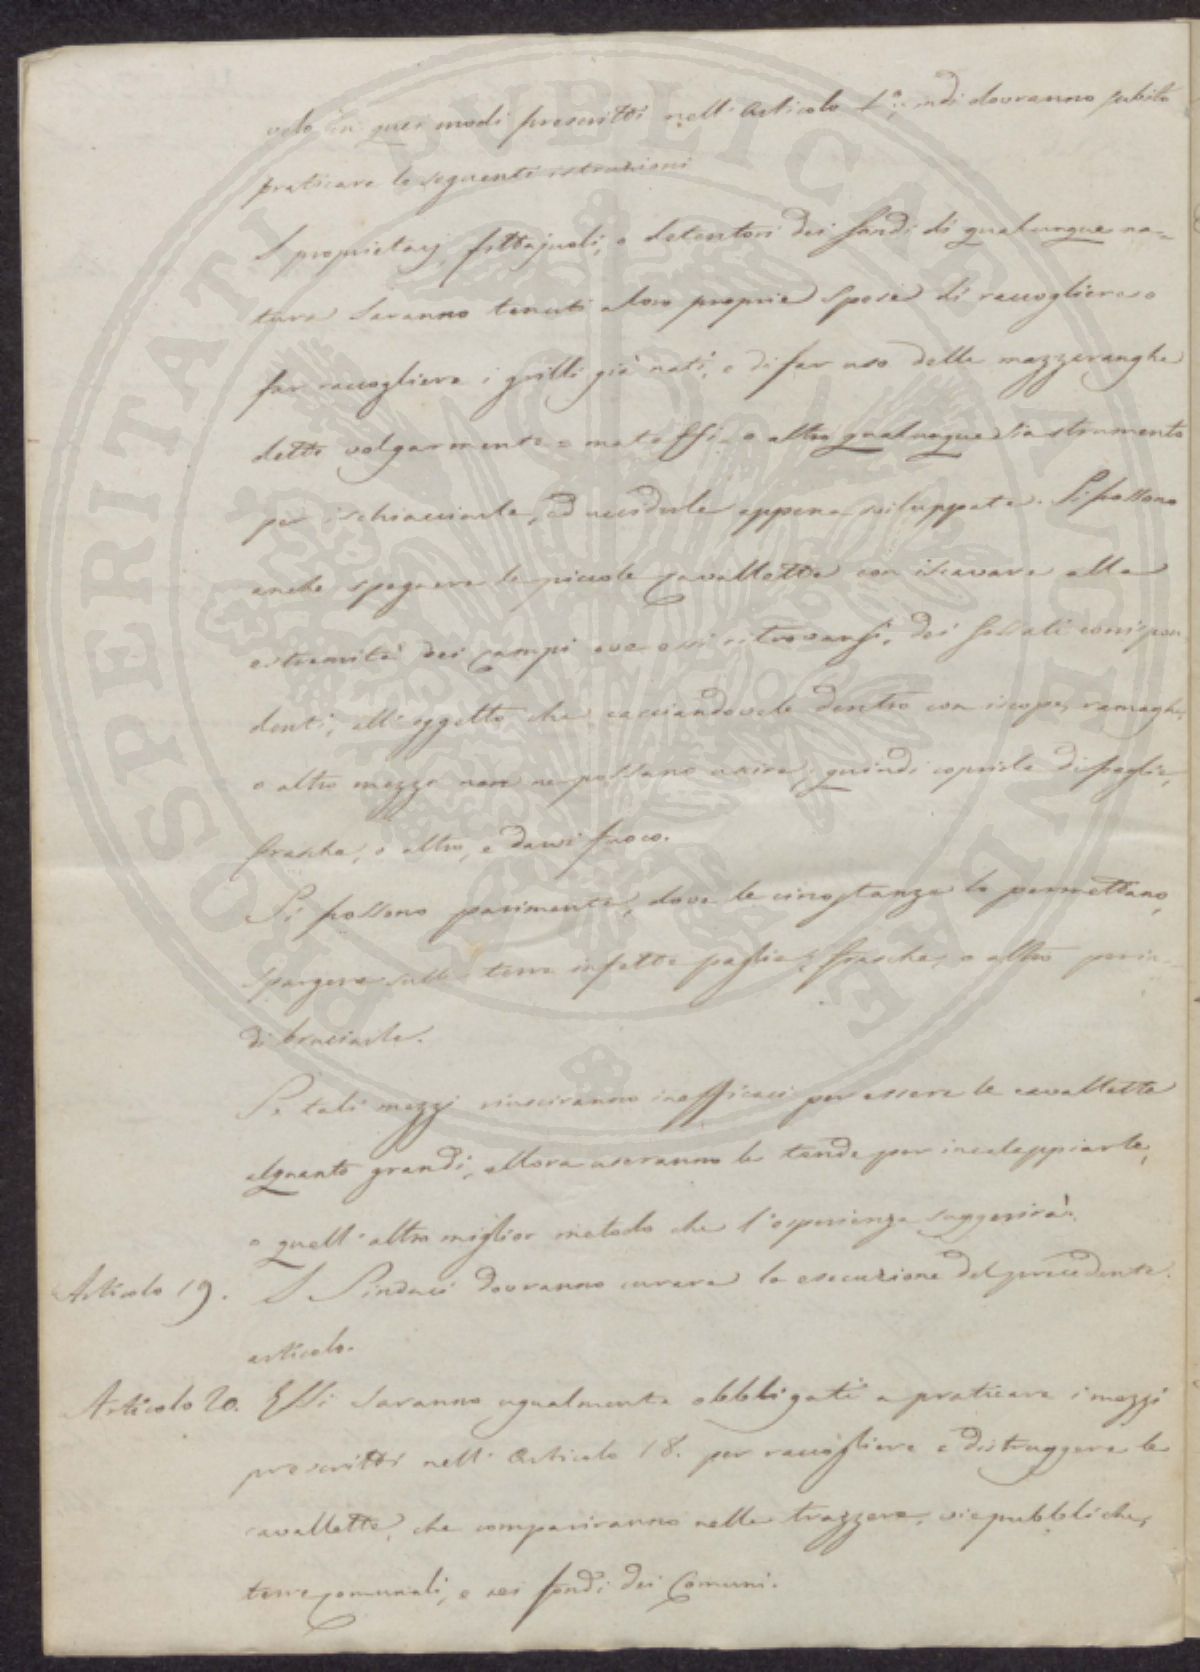 velo in quei modi prescritti nell'Articolo 1.°; indi dovranno subito
praticare le seguenti istruzioni
I proprietarj, fittajuoli, o detentori dei fondi di qualunque na=
tura saranno tenuti a loro proprie spese di raccogliere o
far raccogliere i grilli già nati, e di far uso delle mazzeranghe
dette volgarmente = mataffi = o altro qualunque sia strumento
per ischiacciarle, ed ucciderle appena sviluppate. Si possono
anche spegnere le piccole cavallette con iscavare alle
estremità dei campi ove essi ritrovansi, dei fossati corrispon
denti, all'oggetto che cacciandovele dentro con iscope, ramaghe,
o altro mezzo non ne possano uscire; quindi coprirle di paglie,
frasche, o altro, e darvi fuoco.
Si possono parimente, dove le circostanze lo permettano,
spargere sulle terre infette paglie, frasche, o altro
di bruciarle.
Se tali mezzi riusciranno inefficaci per essere le cavallette
alquanto grandi, allora useranno le tende per incaleppiarle,
o quell'altro miglior metodo che l'esperienza suggerirà.
Articolo 19. I Sindaci dovranno curare la esecuzione del precedente
articolo.
Articolo 20. Essi saranno ugualmente obbligati a praticare i mezzi
prescritti nell'Articolo 18. per raccogliere e distruggere le
cavallette, che compariranno nelle trazzere, vie pubbliche,
terre comunali, e nei fondi dei Comuni.
PROSPERITATI PUBLICAE AUGENDAE